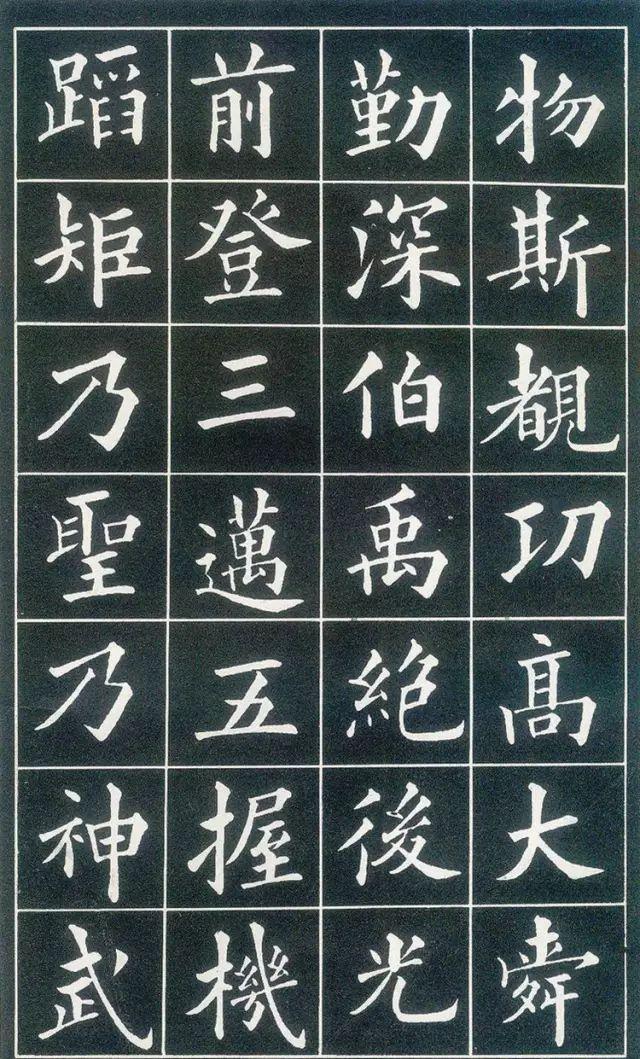 物斯覩功高大舜
勤深伯禹絶後光
前登三邁五握機
蹈矩乃聖乃神武